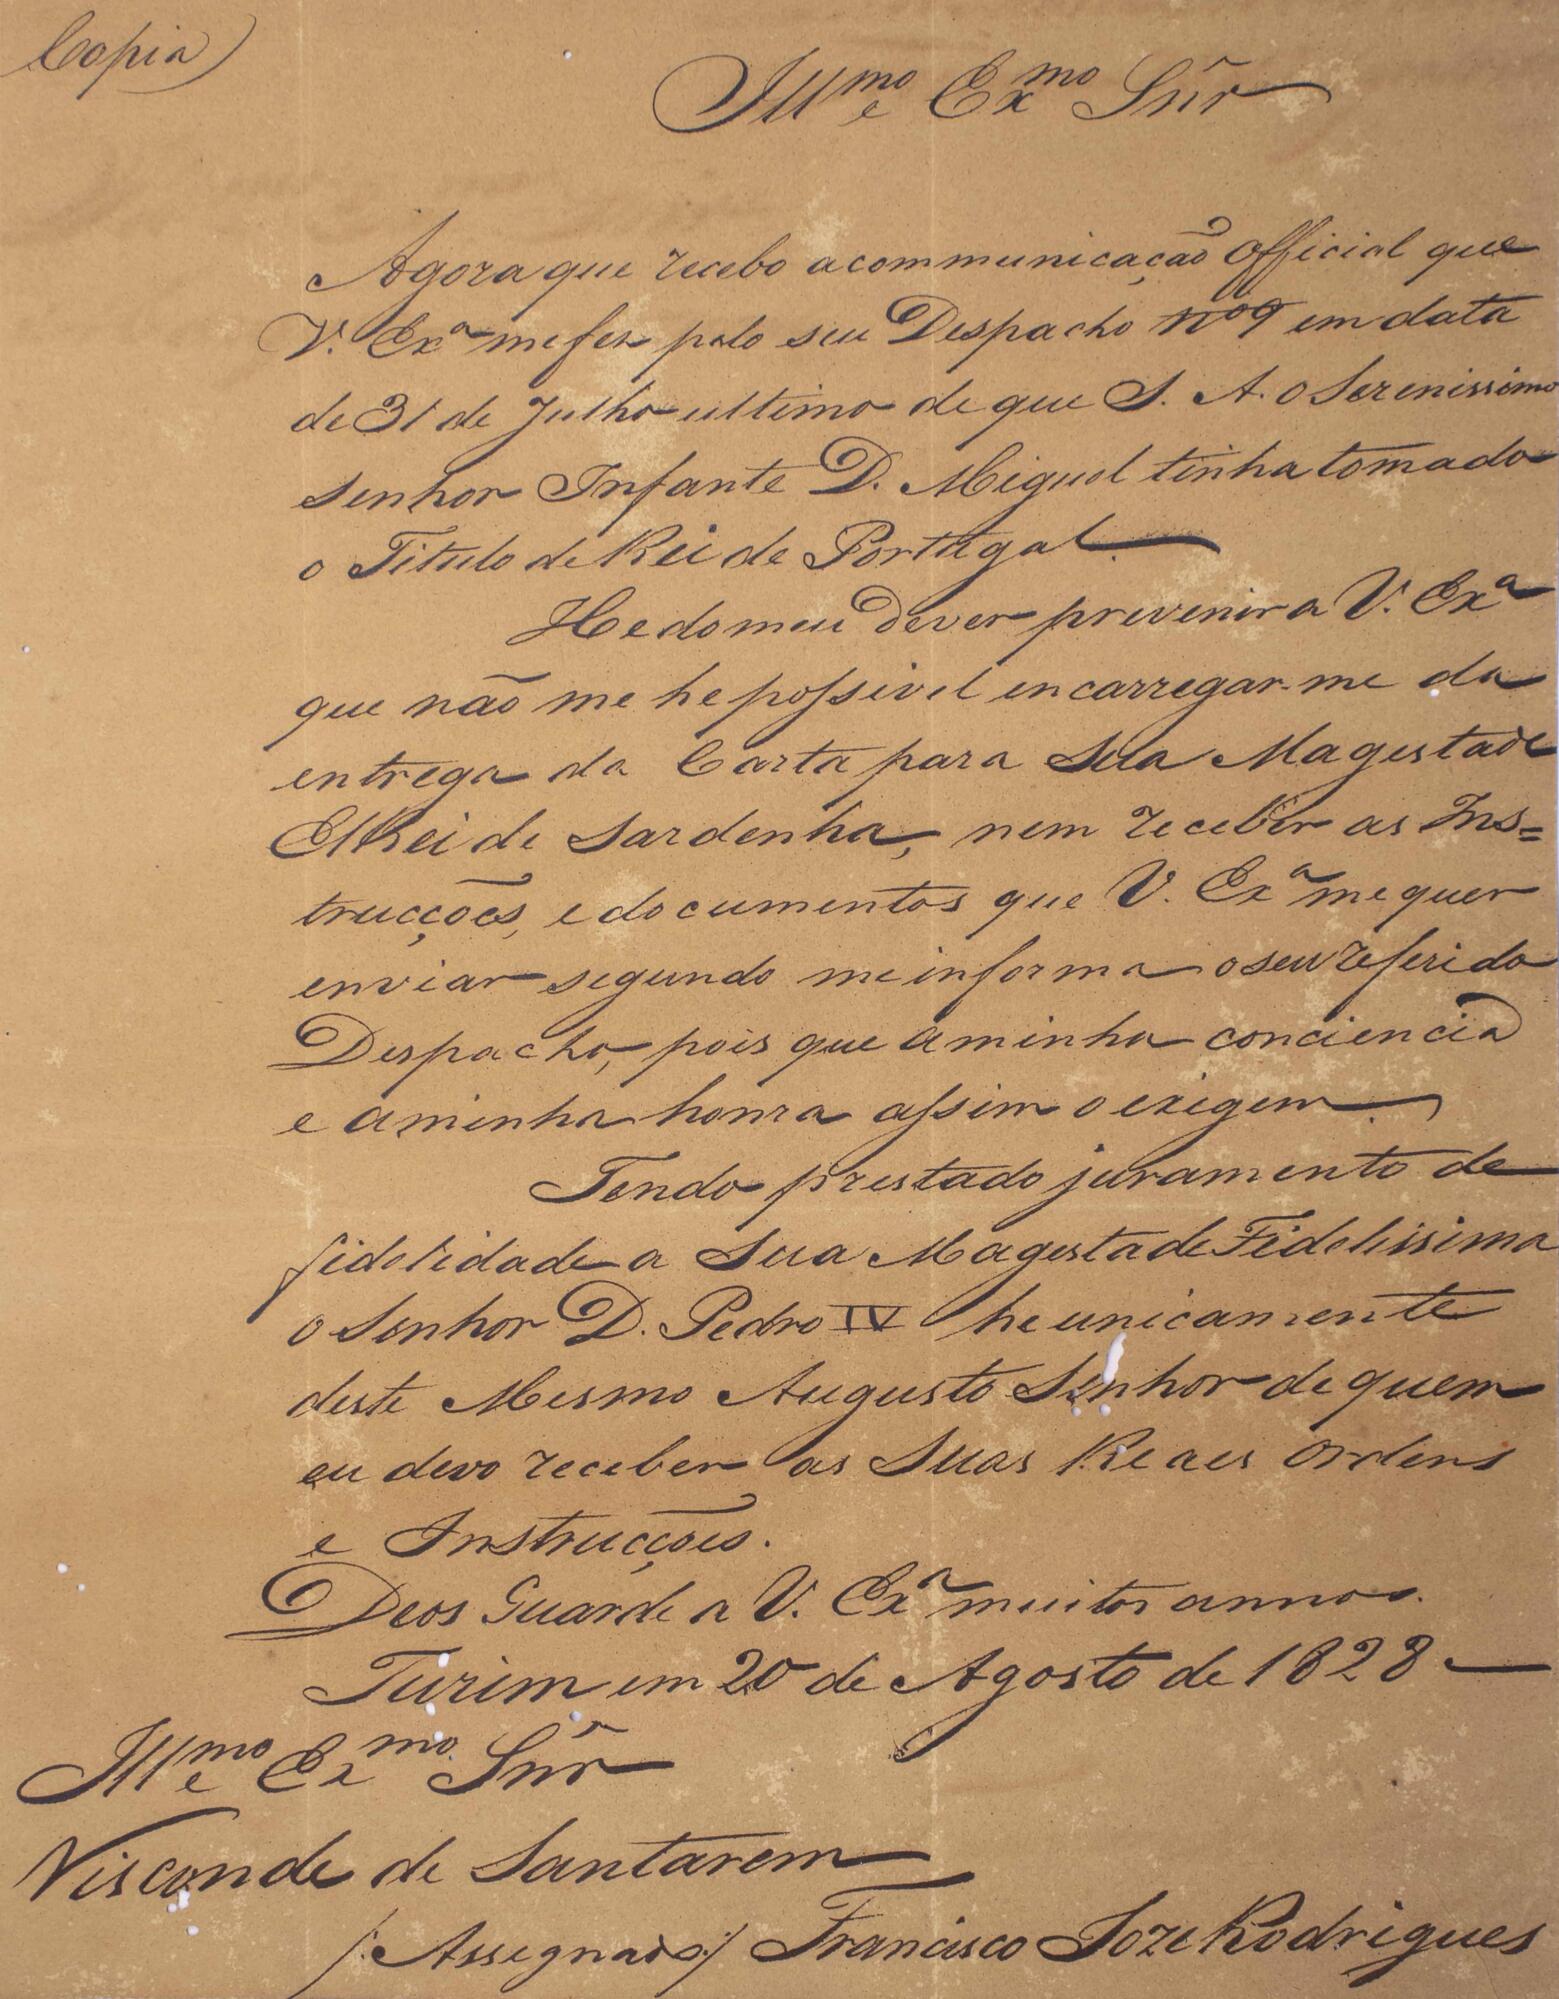 Copia
Ill.mo e Ex.mo Snr̃
Agora que recebo a communicação Official que
V. Ex.a me fez pelo seu Despacho nº 9 em data
de 31 de Julho ultimo de que S. A. o Serenissimo
Senhor Infante D. Miguel tinha tomado
o Titulo de Rei de Portugal.
He do meu dever prevenir a V. Ex.a
que não me he possivel encarregar-me da
entrega da Carta para Sua Magestade
ElRei de Sardenha, nem receber as Ins=
trucções, e documentos que V. Ex.a me quer
enviar segundo me informa o seu referido
Despacho, pois que a minha conciencia
e a minha honra assim o exigem.
Tendo prestado juramento de
fidelidade a Sua Magestade Fidelissima
o Senhor D. Pedro IV he unicamente
deste Mesmo Augusto Senhor de quem
eu devo receber as Suas Reaes Ordens
e Instrucções.
Deos Guarde a V. Ex.a muitos annos.
Turim em 20 de Agosto de 1828 —
Ill.mo e Ex.mo Snr̃
Visconde de Santarem
/: Assegnado :/ Francisco Joze Rodrigues